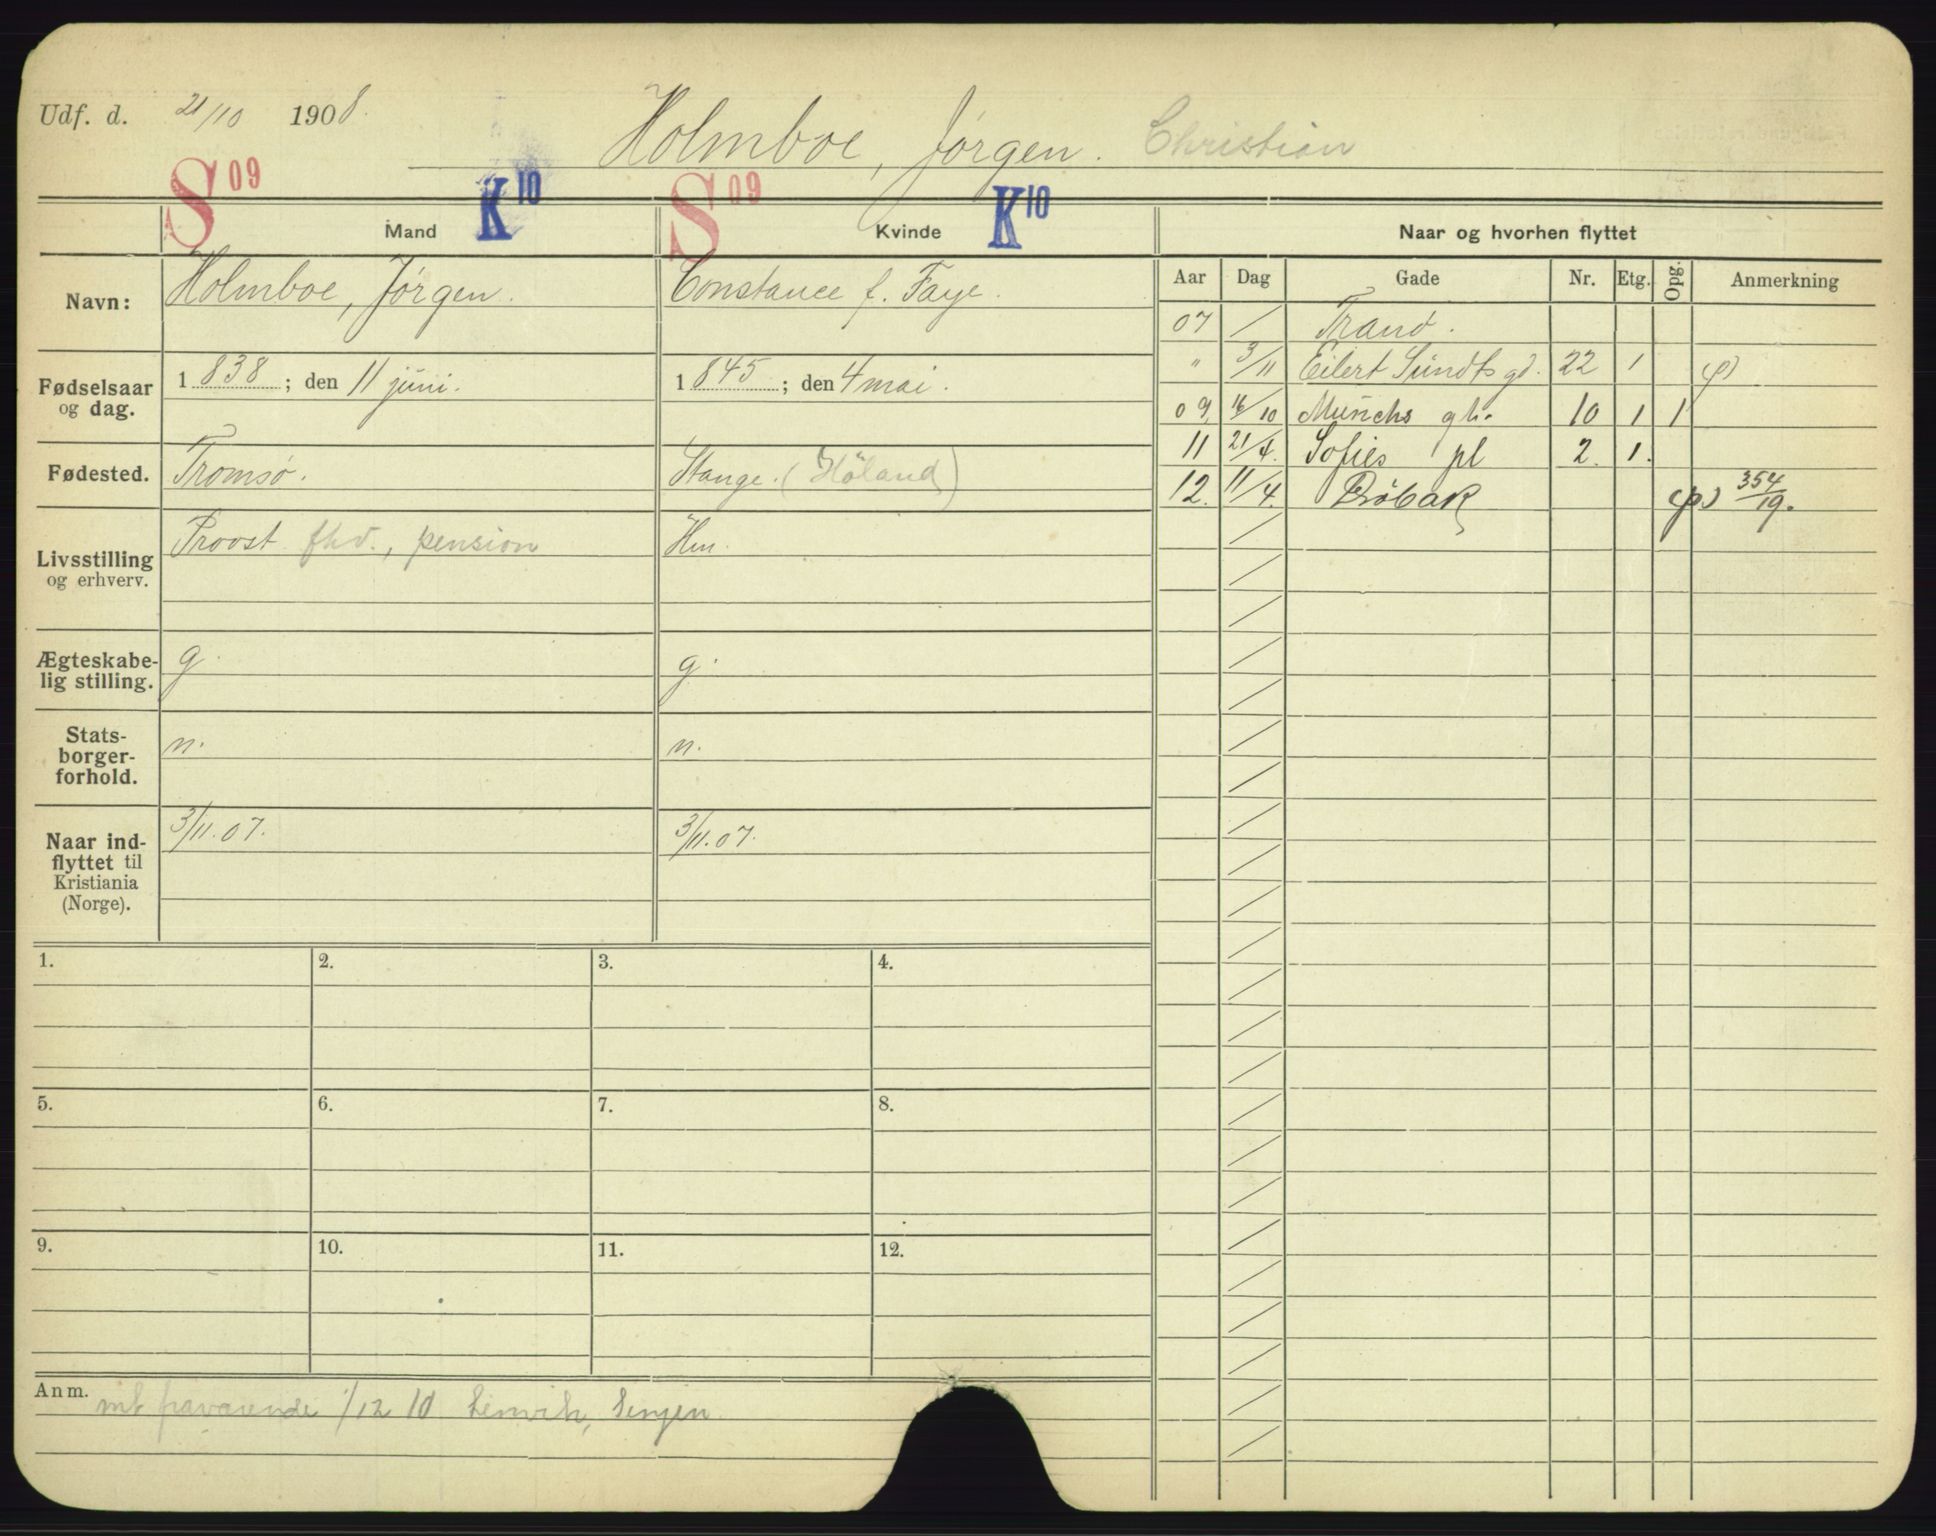 Udf. d. 21/10 1908. Holmboe, Jørgen. Christian
S 09 K 10 S 09 K 10
Mand Kvinde Naar og hvorhen flyttet
Navn: Holmboe, Jørgen. Constance f. Faye.
Aar Dag Gade Nr. Etg. Opg. Anmerkning
07 / Tranø.
" 3/11 Eilert Sundts gd. 22 1
09, 16/10 Munchs gt. 10 1 1
11 21/4. Sofies pl 2. 1.
12. 11/4. Drøbak (p) 354/19.
Fødselsaar og dag. 1838; den 11 juni. 1845; den 4 mai.
Fødested. Tromsø. Stange. (Høland)
Livsstilling og erhverv. Provst fhv., pension Hm.
Ægteskabe-
lig stilling. g. g.
Stats-
borger-
forhold. n. n.
Naar ind-
flyttet til
Kristiania
(Norge). 3/11.07. 3/11.07.
1. 2. 3. 4.
5. 6. 7. 8.
9. 10. 11. 12.
Anm. mt fraværende 1/12 10 Lenvik, Senjen.